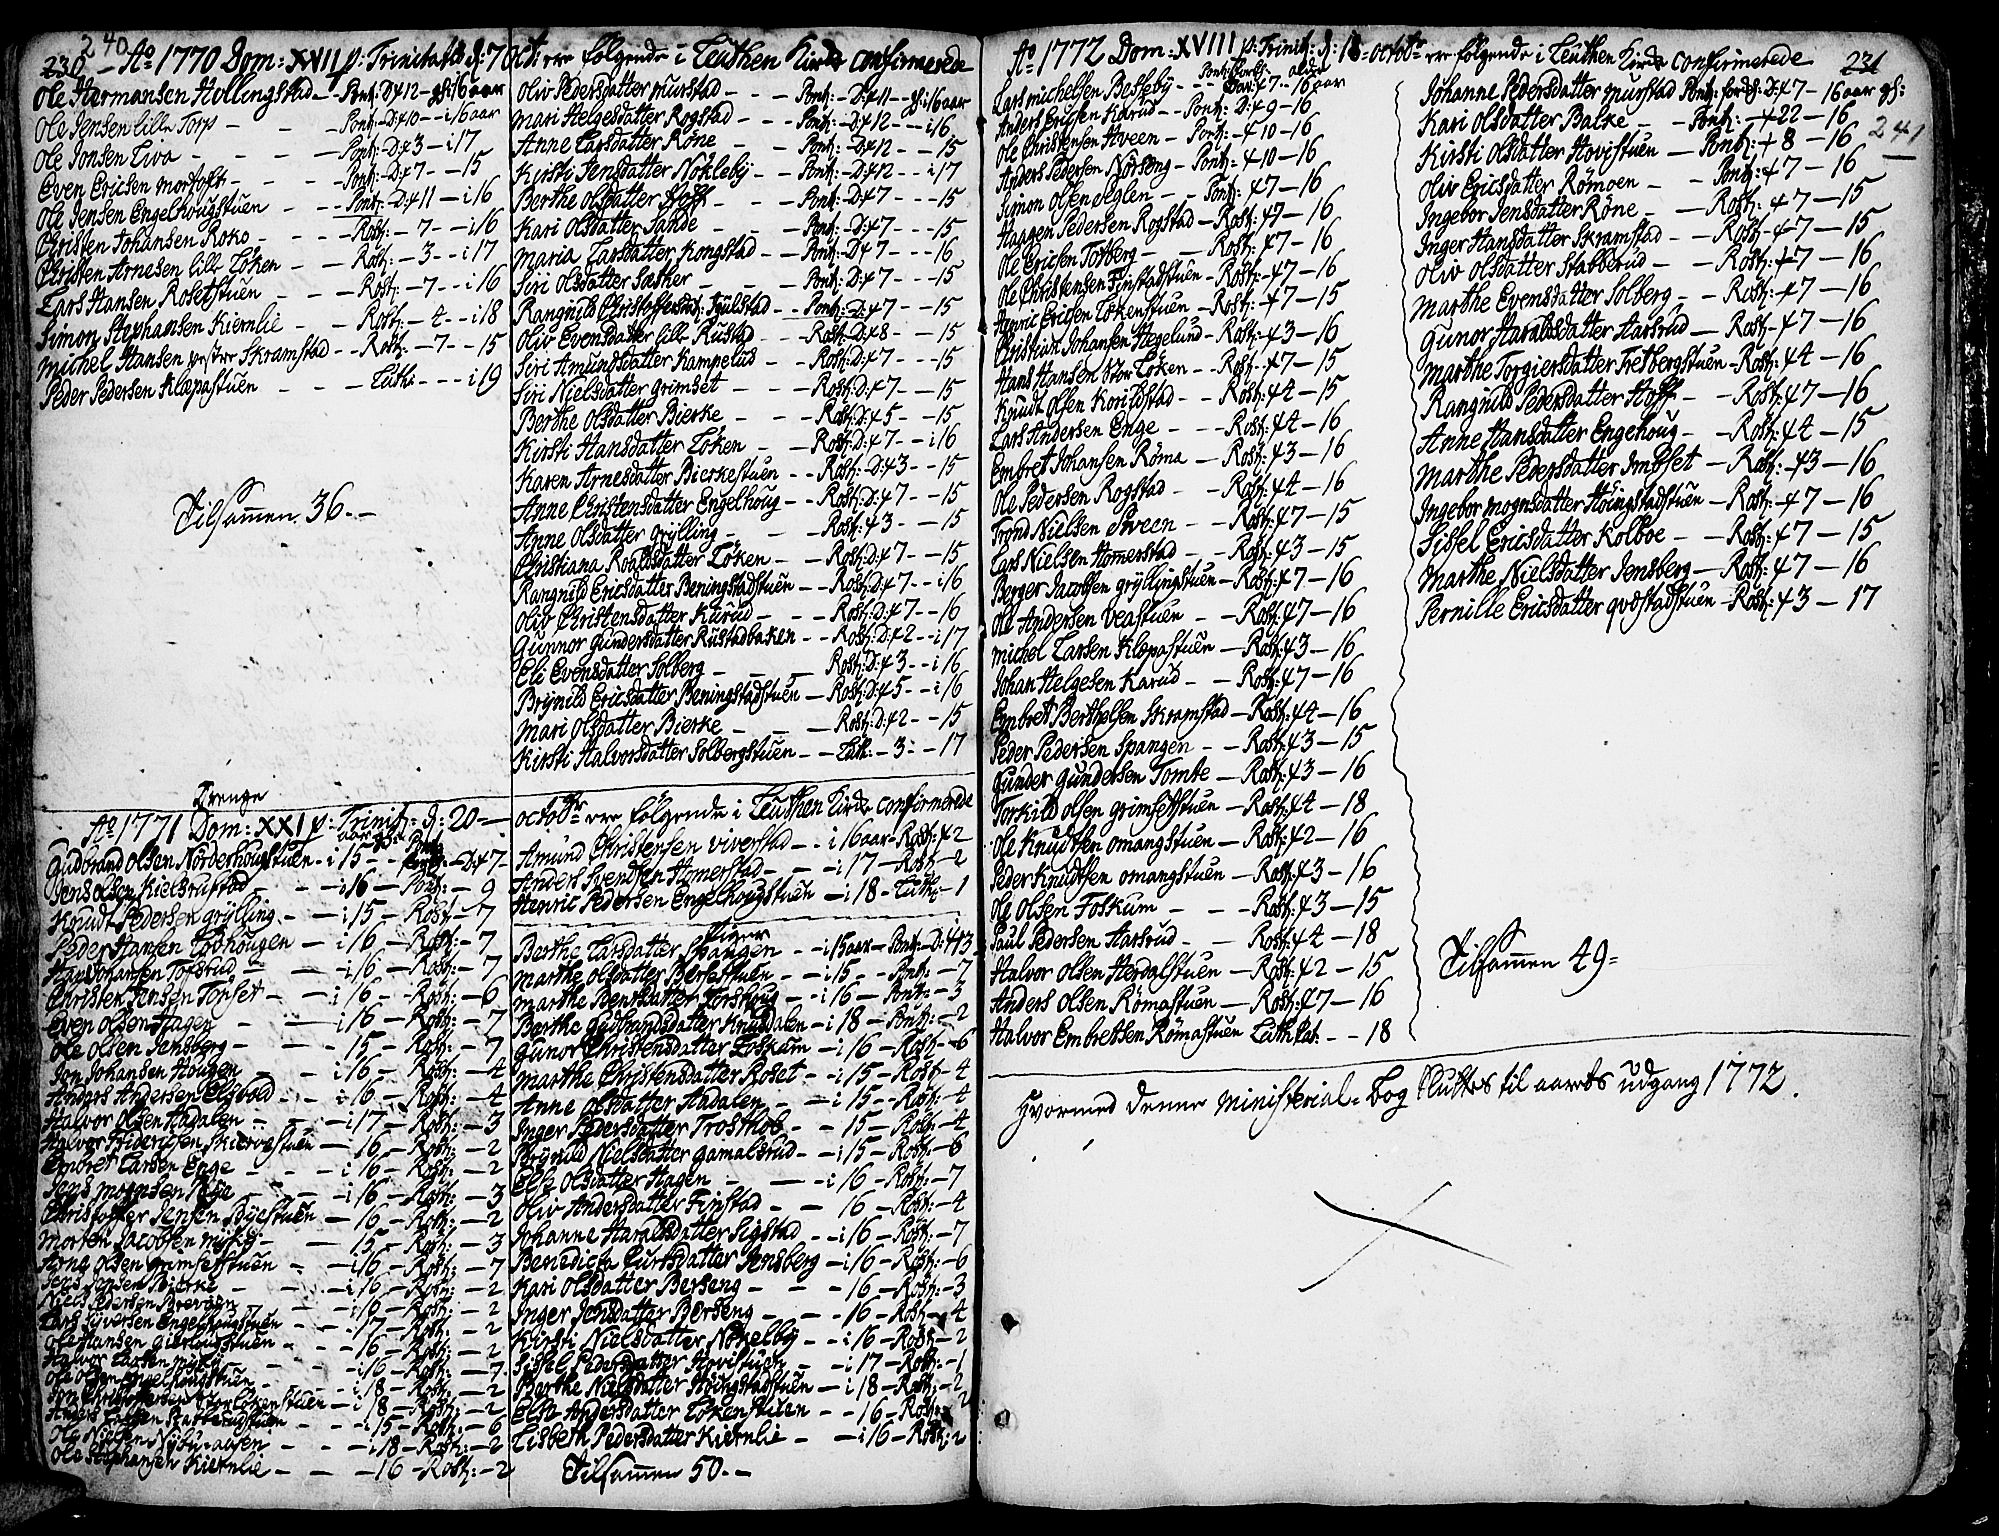 240
230 – Aº 1770 Dom: XVII p: Trinitatis d: 7 Oct: ere følgende i Leuthen Kirke confirmerede
Ole Hermansen Hollingstad – Pont: D: 412 – gl: i 16 aar
Ole Jensen lille Torp – – – Pont: D: 410 – – i 16 aar
Ole Jonsen Liva – – – – Pont: D: 43 – i 17
Even Ericsen Mortoft – – – Pont: D: 47 – – 15
Ole Jensen Engelhougstuen – – – Pont: D: 411 – i 16
Christen Johansen Roko – – – – Rosk: – 7 – – i 16
Christen Arnesen lille Löken – – Rosk: – 3 – – i 17
Lars Hansen Rosetstuen – – – Rosk: – 7 – – i 16
Simon Stephansen Kiernlie – – – Rosk: – 4 – – i 18
Michel Hansen vestre Skramstad – – Rosk: – 7 – – 15
Peder Pedersen Klæpastuen – – – Luth: – – – i 19
Tilsammen 36 – –
Oliv Pedersdatter Murstad – – – Pont: – D: 411 – gl: i 16 aar
Mari Helgesdatter Rogstad – – – Pont: – D: 412 – – i 16
Anne Larsdatter Röne – – – Pont: – D: 412 – – – 15
Kirsti Jensdatter Nökleby – – Pont: – D: 412 – – i 17
Berthe Olsdatter Hoff – – – Pont: – D: 47 – – – 15
Kari Olsdatter Sande – – – Pont: – D: 47 – – – 15
Maria Larsdatter Kongstad – – Pont: – D: 47 – – – 16
Siri Olsdatter Sæther – – – Pont: – D: 47 – – – 15
Rangnild Christoffersdat: Fyulstad – – Pont: – D: 47 – – 15
Oliv Evensdatter lille Rustad – – Rosk: D: 48 – – 15
Siri Amundsdatter Kampelud – – Rosk: D: 47 – – – 15
Siri Nielsdatter Grimset – – – Rosk: D: 47 – – 15
Berthe Olsdatter Bierke – – – Rosk: D: 45 – – 15
Kirsti Hansdatter Löken – – Rosk: D: 47 – – i 16
Karen Arnesdatter Bierkestuen – – Rosk: D: 43 – – 15
Anne Christensdatter Engelhoug – – Rosk: D: 47 – – 15
Anne Olsdatter Grylling – – – Rosk: 43 – – – 15
Christiana Roaldsdatter Löken – – Rosk: D: 47 – – 15
Rangnild Ericsdatter Beningstadstuen – – Rosk: D: 47 – – i 16
Oliv Christensdatter Kurud – – – Rosk: D: 47 – – 16
Gunnor Gundersdatter Rustadbaken – – Rosk: D: 42 – – i 17
Eli Evensdatter Solberg – – – Rosk: D: 43 – – i 16
Brynild Ericsdatter Beningstadstuen – Rosk: D: 45 – – i 16
Mari Olsdatter Bierke – – – – Rosk: D: 42 – – 15
Kirsti Halvorsdatter Solbergstuen – – Luth: – 3 – – 17
Drenge
Aº 1771 Dom: XXI p: Trinit: d: 20 – octobr: ere følgende i Leuthen Kirke confirmerede
Gudbrand Olsen Norderhougstuen – i 15 – – Pont: – D: 47
Jens Olsen Kielsrustad – – – i 16 – Pont: – 9
Knudt Pedersen Grylling – – – i 15 – Rosk: – 7
Peder Hansen Lobhougen – – i 16 – Rosk: – 7
Johansen Tofsrud – – – i 16 – Rosk: – 7
Christen Jensen Tönset – – – i 16 – – Rosk: – 6
Even Olsen Hagen – – – i 16 – Rosk: – 7
Ole Olsen Jensberg – – – 15 – Rosk: – 7
Jon Johansen Hougen – – – i 16 – Rosk: – 4
Anders Andersen Elsbad – – – i 16 – Rosk: – 4
Halvor Olsen Aadalen – – – i 17 – Rosk: – 3
Halvor Fridericsen Skierwestuen – – 16 – Rosk: – 2
Embret Larsen Enge – – – i 16 – Rosk: – 2
Jens Mognsen – – – i 16 – Rosk: – 3
Christoffer Jensen Byestuen – – 16 – Rosk: – 2
Morten Jacobsen Myhr – – – 15 – Rosk: – 3
Arne Olsen Grimsetstuen – – i 16 – Rosk: – 7
Jens Jensen Bierke – – – i 16 – Rosk: – 2
Niels Pedersen – – – i 18 – Rosk: – 2
Lars Syversen Engelhougstuen – – 17 – Rosk: – 2
Ole Hansen – – – 16 – Rosk: – 2
Halvor Larsen Myhr – – – i 16 – Rosk: – 7
Ole Olsen Engelhougstuen – – – i 18 – Rosk: – 2
Jon Christoffersen Stor Lökenstuen – i 18 – Rosk: – 2
Anders Larsen Stabberudstuen – – – i 15 – Rosk: – 6
Ole Nielsen – – – i 18 – Rosk: – 2
Ole Stephansen Kiernlie – – – 16 – Rosk: – 2
Amund Christensen Viverstad – – i 16 aar – Rosk: 42
Anders Svendsen Homerstad – – – i 17 – Rosk: 2
Henric Pedersen Engelhougstuen – i 18 – Luth: – 1
Piger
Berthe Larsdatter Spangen – – i 15 aar – Pont: – D: 413
Marthe Olsdatter Bersetstuen – – i 15 – – Pont: – 7
Marthe Bentsdatter Torshoug – – i 16 – Pont: – 3
Berthe Gudbrandsdatter Knusdalen – i 18 – Pont: – 2
Gunor Christensdatter Foskum – i 16 – Rosk: – 6
Marthe Christensdatter Roset – – i 15 – Rosk: 4
Anne Olsdatter Aadalen – – i 15 – Rosk: 4
Inger Pedersdatter Trosthol – – 15 – Rosk: – 4
Brynild Nielsdatter Gamalsrud – – i 15 – Rosk: – 6
Elie Olsdatter Hagen – – – i 16 – Rosk: – 7
Oliv Andersdatter Finstad – – 16 – Rosk: – 4
Johanne Haraldsdatter Sigstad – – i 16 – Rosk: – 7
Benedicta Curtsdatter Jensberg – i 16 – Rosk: – 6
Kari Olsdatter Berseng – – – 16 – Rosk: – 3
Inger Jensdatter Berseng – – – 16 – Rosk: – 4
Kirsti Nielsdatter Nökelby – – i 16 – Rosk: – 2
Sissel Pedersdatter Hovistuen – – i 17 – Rosk: – 1
Berthe Nielsdatter Höingstadstuen – i 18 – Rosk: – 2
Elsa Andersdatter Lökenstuen – – 16 – Rosk: – 2
Lisbeth Pedersdatter Kiernlie – – i 16 – Rosk: 2
Tilsammen 50 – –
Aº 1772 Dom: XVIII p: Trinit: d: 18 – octobr: ere følgende i Leuthen Kirke confirmerede 231
241
Lars Michelsen Besseby – – – 47 – 16 aar
Anders Ericsen Karud – – Pont: D: 49 – 16
Ole Christensen Hveen – Pont: – 410 – 16
Anders Pedersen Norseng – Pont: – 410 – 16
Simon Olsen Seglen – – Pont: 47 – 16
Haagen Pedersen Rogstad – Rosk: 47 – 16
Ole Ericsen Torberg – – Rosk: 47 – 16
Ole Christensen Finstadstuen – Rosk: – 47 – 16
Henric Ericsen Lökenstuen – Rosk: – 47 – 15
Christian Johansen Hegelund – Rosk: – 43 – 16
Hans Hansen Stor Löken – Rosk: – 47 – 15
Knudt Olsen Korildstad – – Rosk: 42 – 15
Lars Andersen Enge – – – Rosk: 44 – 16
Embret Johansen Röma – Rosk: 43 – 16
Ole Pedersen Rogstad – – Rosk: 44 – 16
Trond Nielsen Sveen – – Rosk: 47 – 15
Lars Nielsen Homerstad – – Rosk: 43 – 15
Berger Jacobsen Gryllingstuen – Rosk: 47 – 16
Ole Andersen Veastuen – – Rosk: 47 – 16
Michel Larsen Klæpastuen – Rosk: 43 – 16
Johan Helgesen Karud – – Rosk: 47 – 16
Embret Berthelsen Skramstad – Rosk: 44 – 16
Peder Pedersen Spangen – – Rosk: 43 – 15
Gunder Gundersen Tomte – Rosk: 43 – 16
Torkild Olsen Grimsetstuen – Rosk: 44 – 18
Ole Knudtsen Omangstuen – Rosk: 42 – 16
Peder Knudtsen Omangstuen – Rosk: 43 – 16
Ole Olsen Foskum – – – Rosk: 43 – 15
Paul Pedersen Aarsrud – – Rosk: 44 – 18
Halvor Olsen Herdalstuen – Rosk: 42 – 15
Anders Olsen Römastuen – Rosk: 47 – 16
Halvor Embretsen Römastuen Luth: Cat: – – 18
Johanne Pedersdatter Murstad Pont: ford: D: 47 – 16 aar gl:
Kari Olsdatter Balke – – Pont: – 422 – 16
Kirsti Olsdatter Hovistuen – Pont: 48 – 16
Oliv Ericsdatter Römoen – – Pont: 47 – 16
Ingebor Jensdatter Röne – – Rosk: 47 – 15
Inger Hansdatter Skramstad – – Rosk: 47 – 15
Oliv Olsdatter Stabberud – – Rosk: 47 – 16
Marthe Evensdatter Solberg – – Rosk: – 47 – 16
Gunor Haraldsdatter Aarsrud – Rosk: 47 – 16
Marthe Torgiersdatter Fretbergstuen – Rosk: 44 – 16
Rangnild Pedersdatter Hoff – – Rosk: 47 – 16
Anne Hansdatter Engehoug – – Rosk: 44 – 15
Marthe Pedersdatter Imbset – Rosk: – 43 – 16
Ingebor Mognsdatter Höingstadstuen – Rosk: – 47 – 16
Sissel Ericsdatter Kolboe – – Rosk: 47 – 15
Marthe Nielsdatter Jensberg – Rosk: 47 – 16
Pernille Ericsdatter Qvæstadstuen – Rosk: 43 – 17
Tilsammen 49 =
Hvormed denne Ministerial = Bog sluttes til aarets udgang 1772.